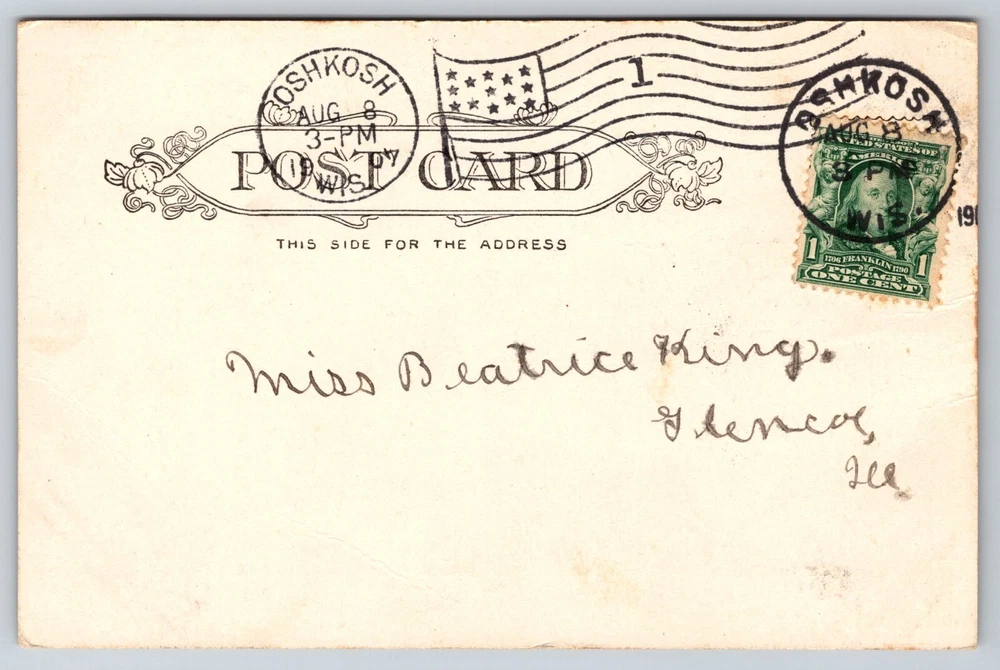 OSHKOSH
AUG 8
3-PM
WIS.
1
POST CARD
THIS SIDE FOR THE ADDRESS
OSHKOSH
AUG 8
3 PM
WIS.
190
UNITED STATES OF
AMERICA
1 1706 FRANKLIN 1790 1
POSTAGE
ONE CENT
Miss Beatrice King.
Glencoe,
Ill.